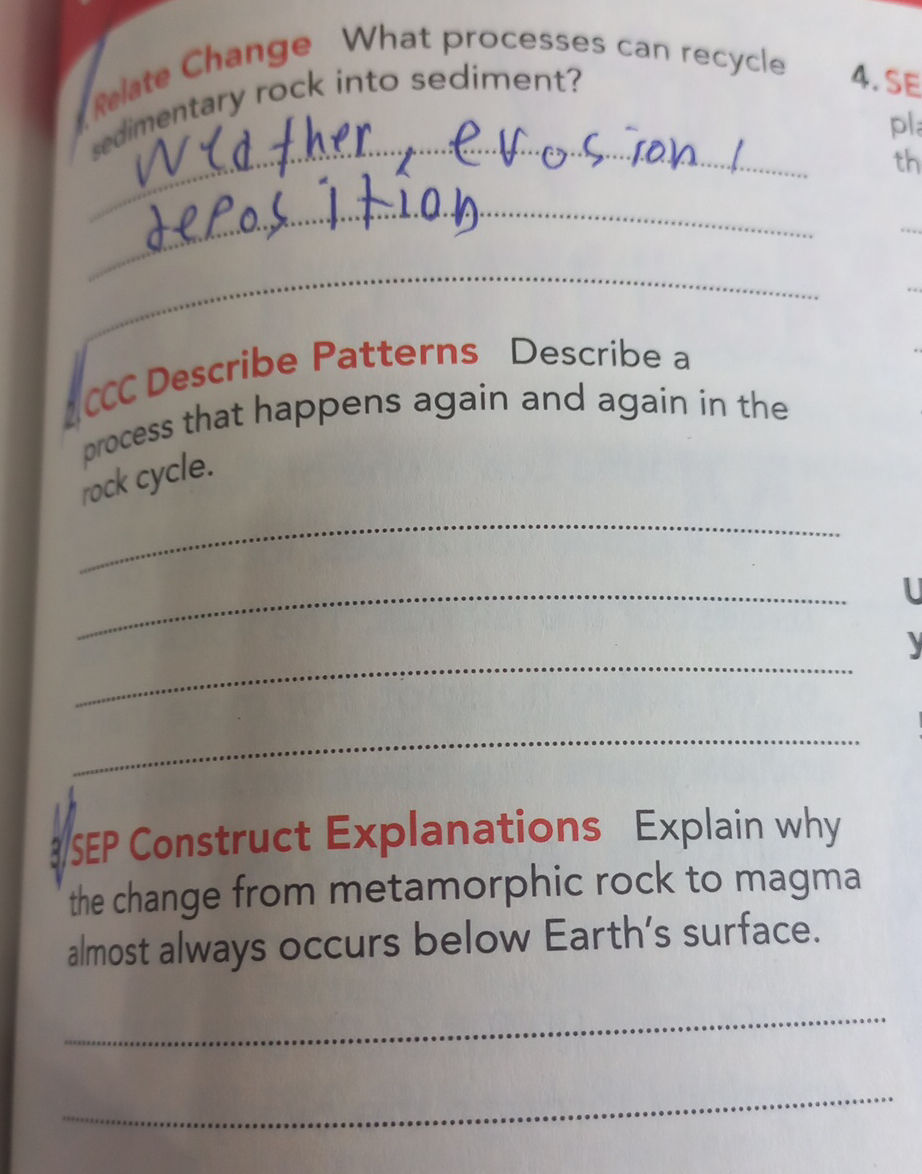 1. Relate Change What processes can recycle
sedimentary rock into sediment?
Weather, erosion,
deposition
2. CCC Describe Patterns Describe a
process that happens again and again in the
rock cycle.
3. SEP Construct Explanations Explain why
the change from metamorphic rock to magma
almost always occurs below Earth's surface.
4. SE
pla
th
U
y